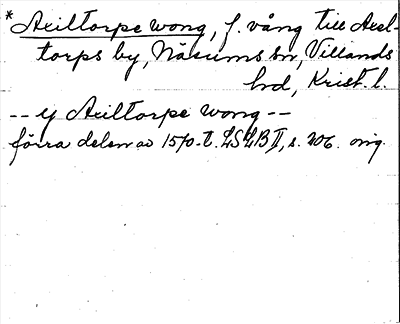 * Axiltorpe wong, f. vång till Axel-
torps by, Näsums sn, Villands
hd, Krist. l.
-- y Axiltorpe wong --
förra delen av 1570-t. LSLB II, s. 206. orig.